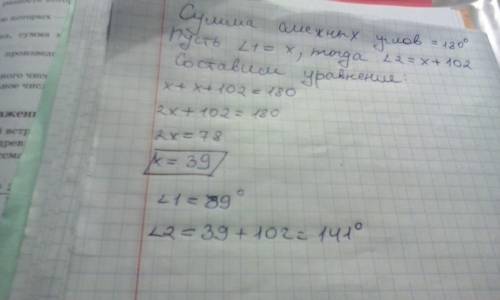 Сумма смежных углов = 180°
Пусть ∠1 = x, тогда ∠2 = x + 102
Составим уравнение:
x + x + 102 = 180
2x + 102 = 180
2x = 78
x = 39
∠1 = 39°
∠2 = 39 + 102 = 141°